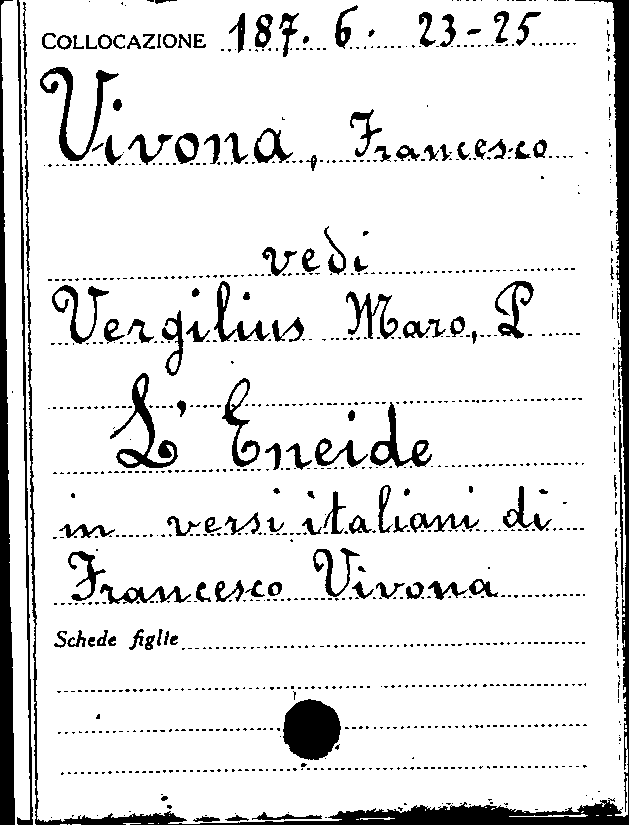 COLLOCAZIONE 187. 6. 23-25
Vivona, Francesco
vedi
Vergilius Maro, P
L'Eneide
in versi italiani di
Francesco Vivona
Schede figlie